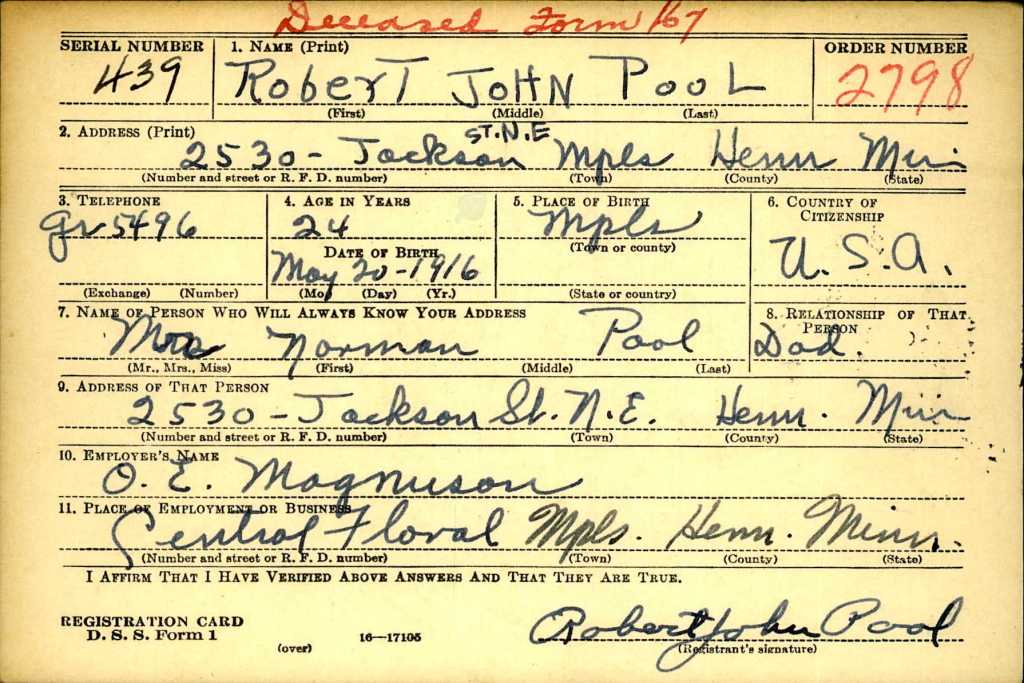 Deceased Form 167
SERIAL NUMBER 1. NAME (Print) ORDER NUMBER
439 ROBERT JOHN POOL 2798
(First) (Middle) (Last)
2. ADDRESS (Print) ST. N.E
2530 - Jackson Mpls Henn Min
(Number and street or R. F. D. number) (Town) (County) (State)
3. TELEPHONE 4. AGE IN YEARS 5. PLACE OF BIRTH 6. COUNTRY OF CITIZENSHIP
Gr 5496 24 Mpls
DATE OF BIRTH (Town or county) U. S. A.
May 20-1916
(Exchange) (Number) (Mo.) (Day) (Yr.) (State or country)
7. NAME OF PERSON WHO WILL ALWAYS KNOW YOUR ADDRESS 8. RELATIONSHIP OF THAT PERSON
Norman Pool Dad.
(Mr., Mrs., Miss) (First) (Middle) (Last)
9. ADDRESS OF THAT PERSON
2530 - Jackson St. N.E. Henn. Min
(Number and street or R. F. D. number) (Town) (County) (State)
10. EMPLOYER'S NAME
O. E. Magnuson
11. PLACE OF EMPLOYMENT OR BUSINESS
Central Floral Mpls. Henn. Minn.
(Number and street or R. F. D. number) (Town) (County) (State)
I AFFIRM THAT I HAVE VERIFIED ABOVE ANSWERS AND THAT THEY ARE TRUE.
REGISTRATION CARD
D. S. S. Form 1 16—17105 Robert John Pool
(over) (Registrant's signature)